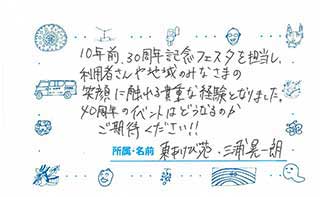 10年前、30周年記念フェスタを担当し、
利用者さんや地域のみなさまの
笑顔に触れる貴重な経験となりました。
40周年のイベントはどうなるのか
ご期待ください!!
所属・名前 東おりび苑・三浦晃一朗